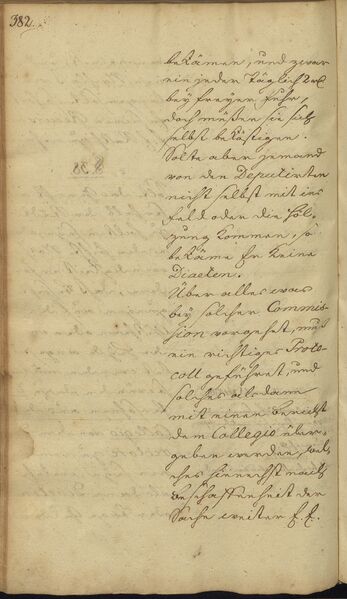 382.
bekämen, und zwar
ein jeder täglich 2 
bey freyer fuhr,
doch müßen sie sich
selbst beköstigen.
Solte aber jemand
von den Deputirten
nicht selbst mit ins
feld oder die Höl-
zung kommen, so
bekäme Er keine
Diaeten.
Über alles was
bey solcher Commis-
sion vorgehet, mus
ein richtiges Proto-
coll geführet, und
solches alsdann
mit einen Bericht
dem Collegio über-
geben werden, wel-
ches hiernechst nach
Beschaffenheit der
Sache weiter f. f.
§ 38